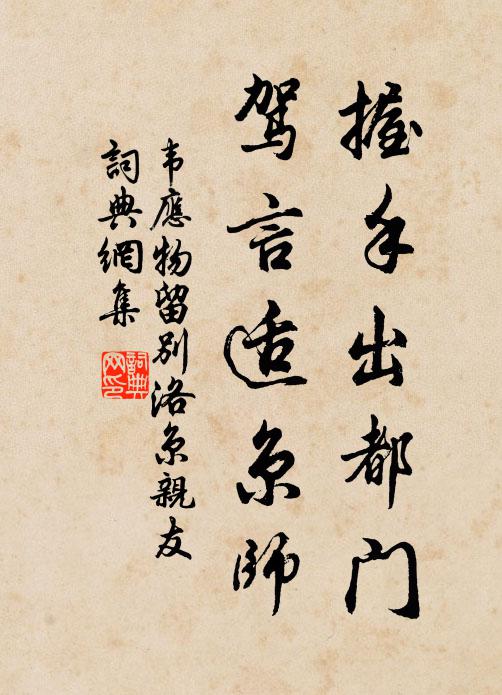 握手出都门
驾言适京师
韦應物留别洛京親友
詞典網集
詞典网印